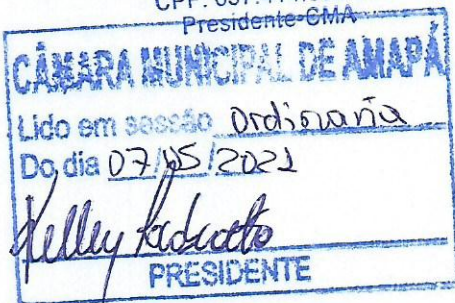 Presidente-CMA
CÂMARA MUNICIPAL DE AMAPÁ
Lido em sessão Ordinaria
Do dia 07/05/2021
PRESIDENTE